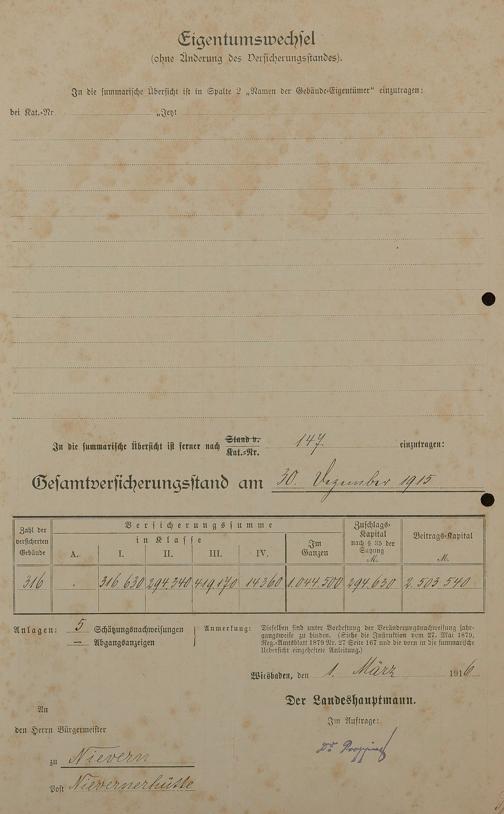 Eigentumswechsel
(ohne Änderung des Versicherungsstandes).
In die summarische Übersicht ist in Spalte 2 „Namen der Gebäude-Eigentümer“ einzutragen:
bei Kat.-Nr „Jetzt
In die summarische Übersicht ist ferner nach Stand v. Kat.-Nr. 147. einzutragen:
Gesamtversicherungsstand am 30. Dezember 1915
Zahl der versicherten Gebäude
Versicherungssumme
in Klasse
A. I. II. III. IV. Im Ganzen
Zuschlags-Kapital nach § 35 der Satzung M.
Beitrags-Kapital M.
316 . 316.630 294.340 419.170 14360 1.044.500 294.630 2.503.540
Anlagen: 5 Schätzungsnachweisungen
— Abgangsanzeigen
Anmerkung: Dieselben sind unter Vorheftung der Veränderungsnachweisung jahr-
gangsweise zu binden. (Siehe die Instruktion vom 27. Mai 1879,
Reg.-Amtsblatt 1879 Nr. 27 Seite 167 und die vorn in die summarische
Uebersicht eingeheftete Anleitung.)
Wiesbaden, den 1. März 1916
Der Landeshauptmann.
Im Auftrage:
An
den Herrn Bürgermeister
zu Nievern
Post Nievernerhütte